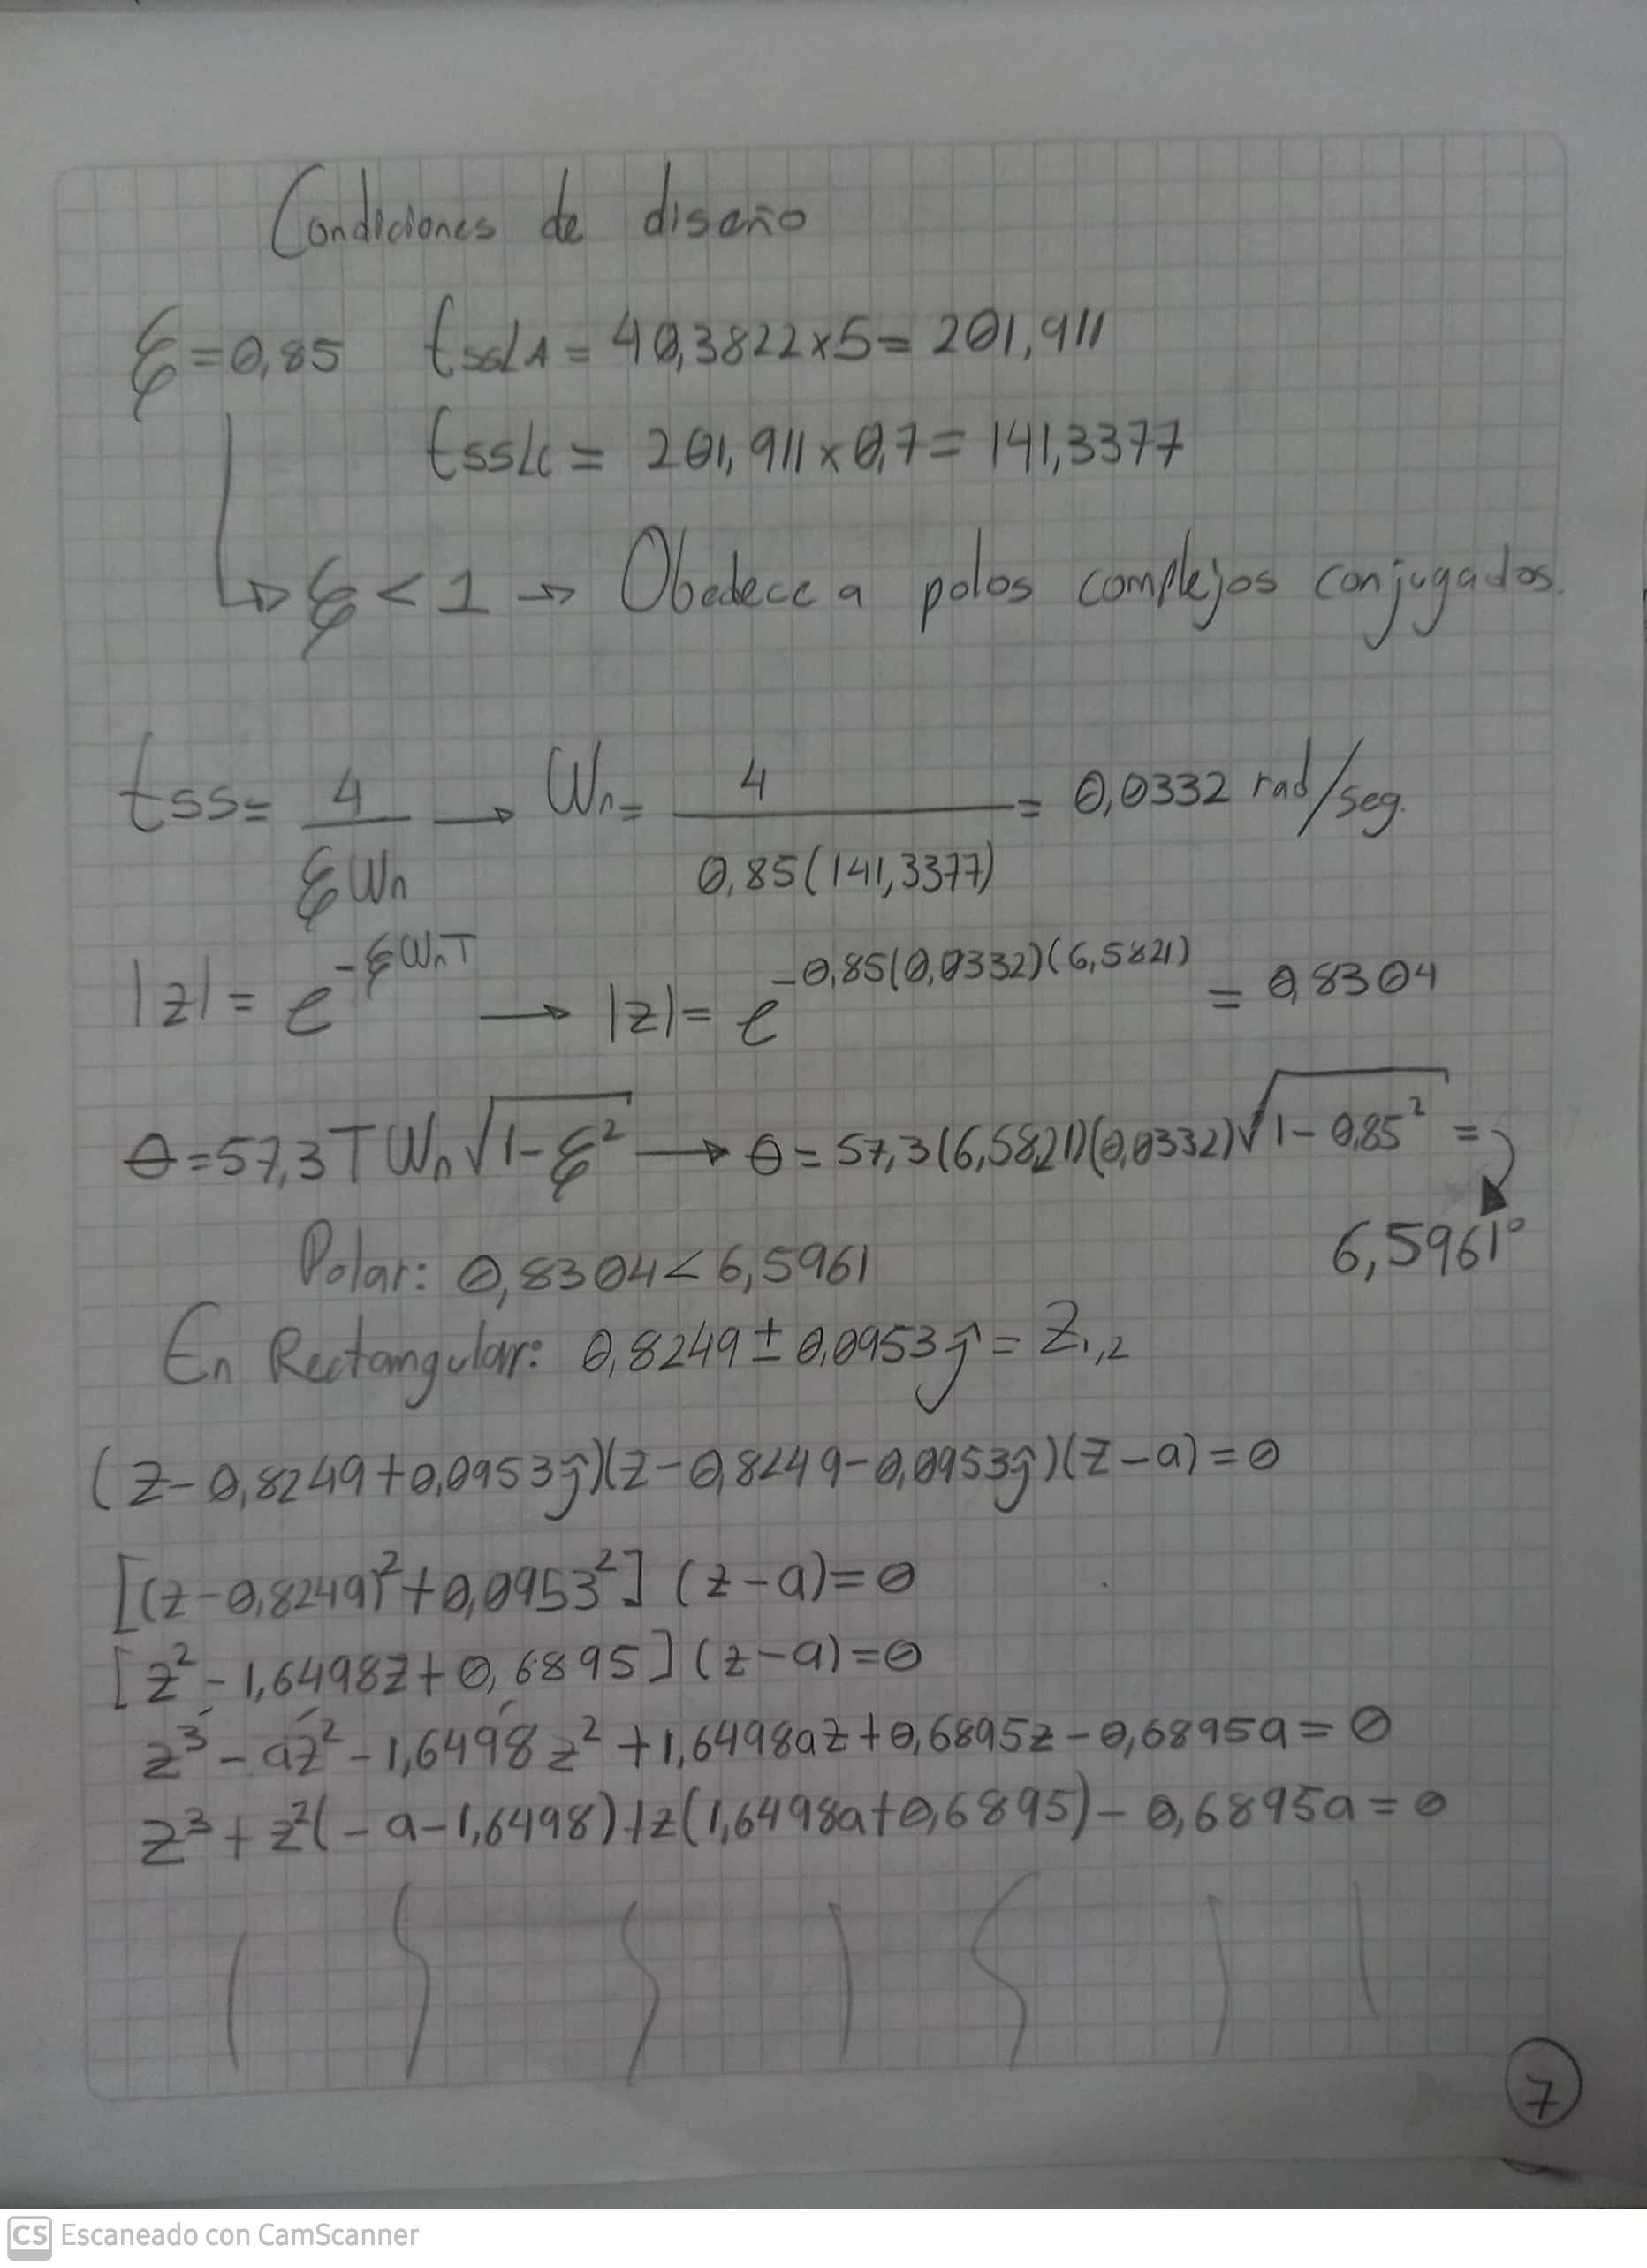 Condiciones de diseño
ξ=0,85 tssLA = 40,3822x5= 201,911
tssLC = 201,911x0,7= 141,3377
ξ < 1 → Obedece a polos complejos conjugados.
tss= 4/ξWn → Wn= 4/0,85(141,3377) = 0,0332 rad/seg.
|z|= e^-ξWnT → |z|= e^-0,85(0,0332)(6,5821) = 0,8304
θ=57,3TWn√1-ξ² → θ=57,3(6,5821)(0,0332)√1-0,85² =
6,5961°
Polar: 0,8304<6,5961
En Rectangular: 0,8249±0,0953j = Z1,2
(z-0,8249+0,0953j)(z-0,8249-0,0953j)(z-a)=0
[(z-0,8249)²+0,0953²] (z-a)=0
[z²-1,6498z+0,6895](z-a)=0
z³-az²-1,6498z²+1,6498az+0,6895z-0,6895a=0
z³+z²(-a-1,6498)+z(1,6498a+0,6895)-0,6895a=0
7
CS Escaneado con CamScanner